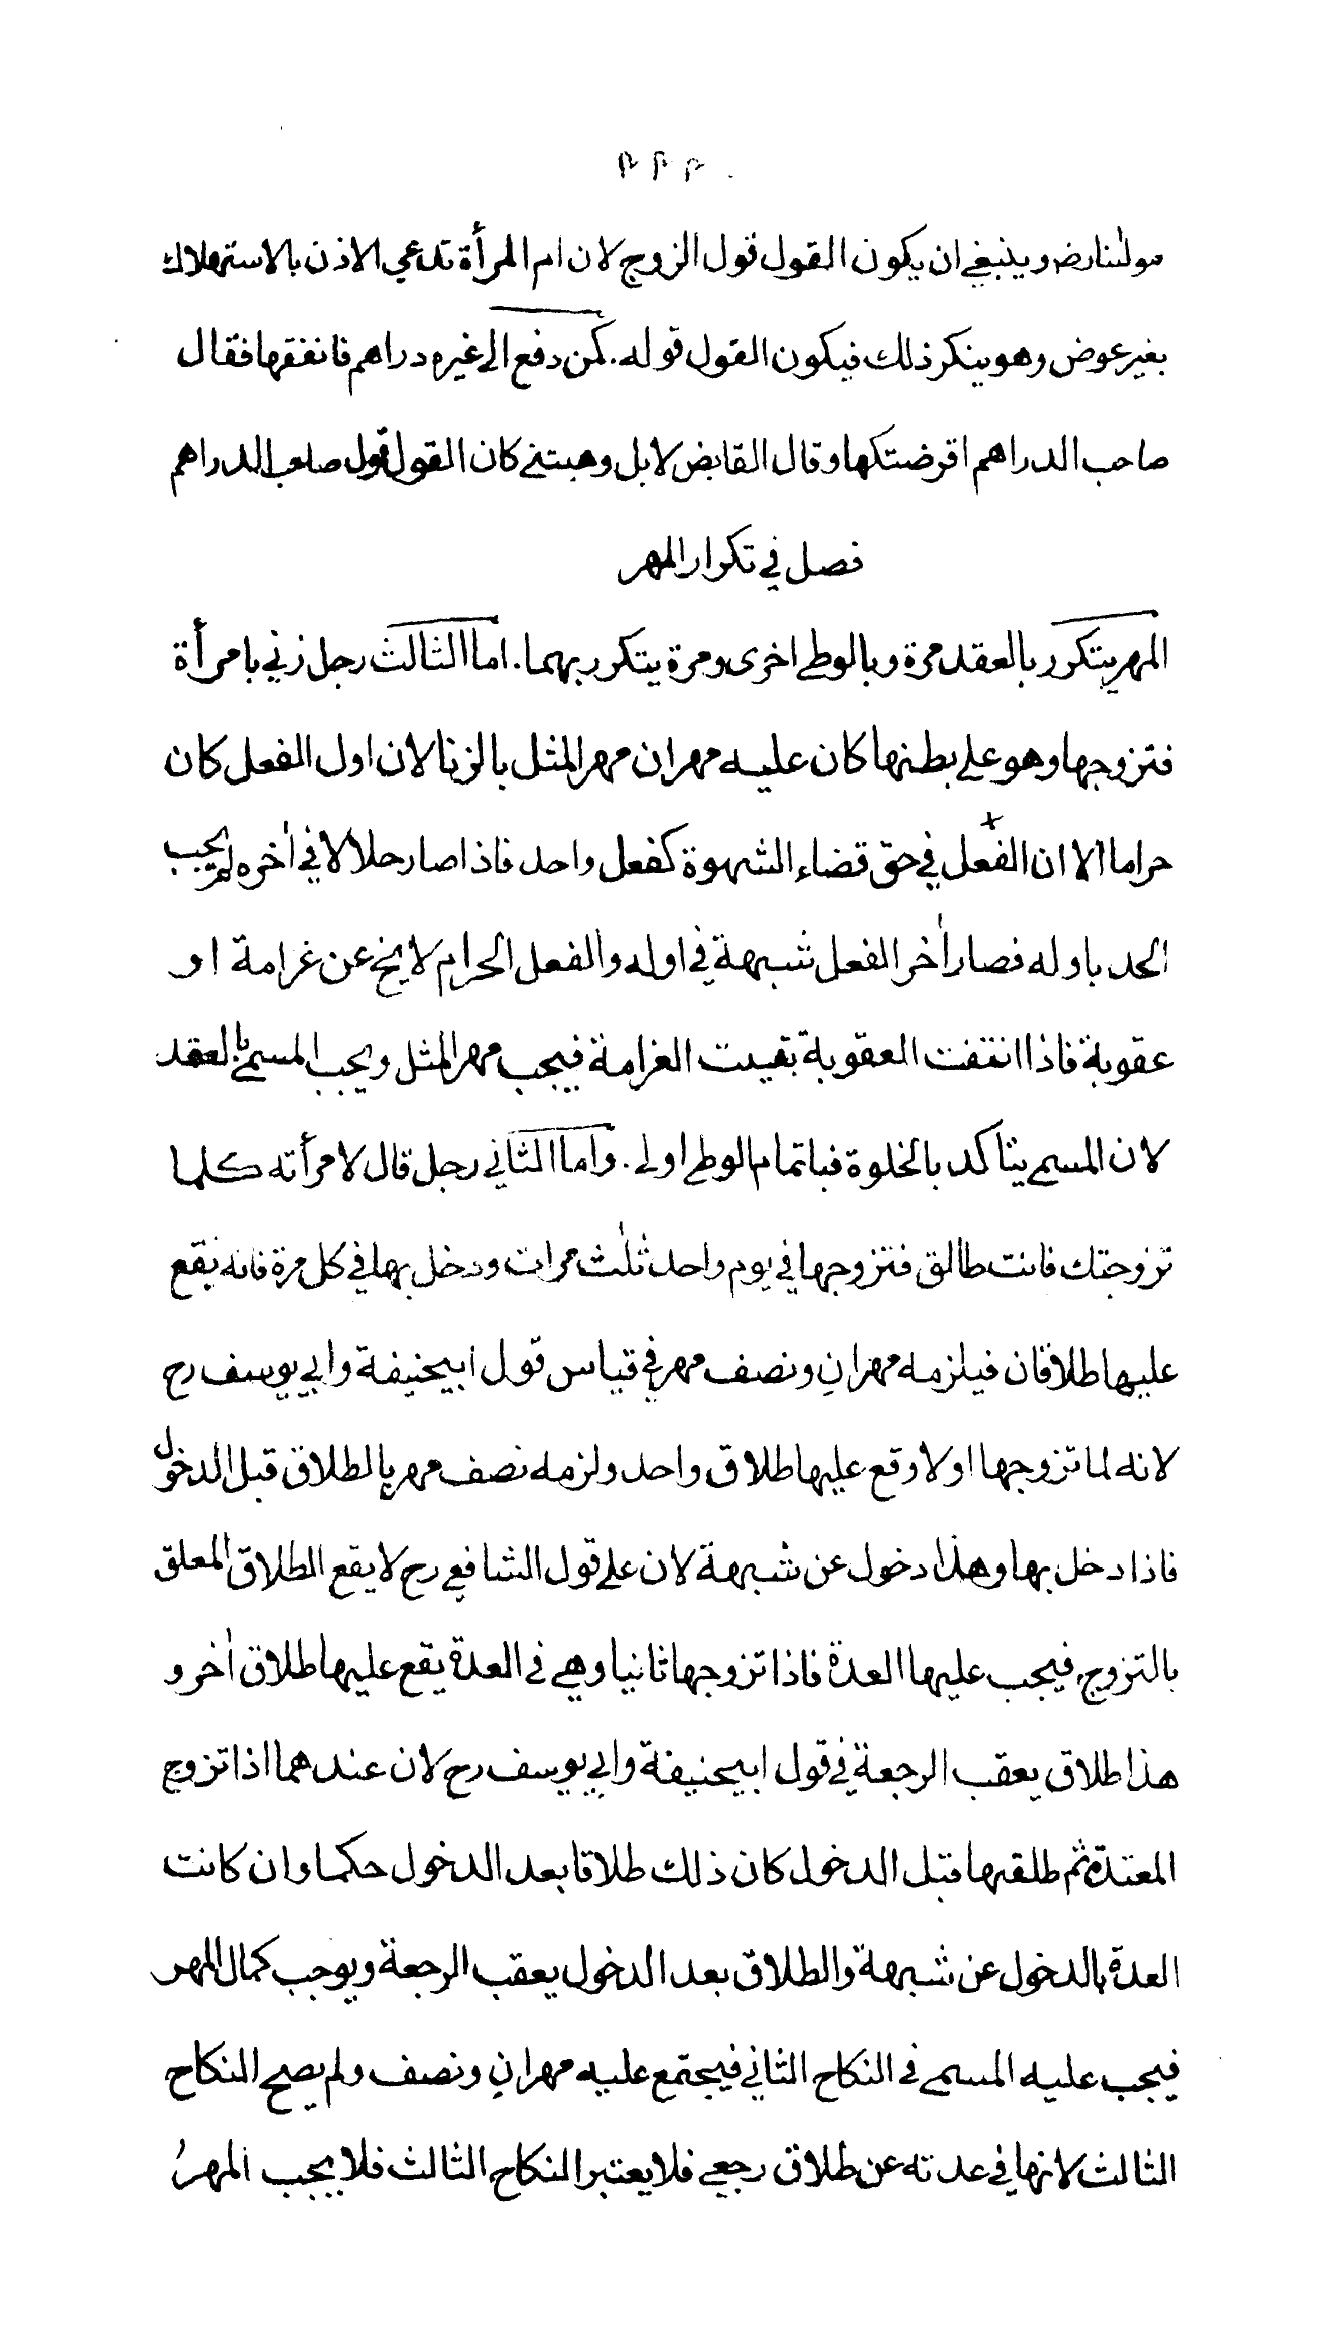 ۴۴۴
مولٰنا رض وينبغي ان يكون القول قول الزوج لان ام المرأة تدعي الاذن بالاستهلاك
بغير عوض وهو ينكر ذلك فيكون القول قوله. كمن دفع الى غيره دراهم فانفقها فقال
صاحب الدراهم اقرضتكها وقال القابض لا بل وهبتني كان القول قول صاحب الدراهم
فصل في تكرار المهر
المهر يتكرر بالعقد مرة وبالوطي اخرى ومرة يتكرر بهما. اما الثالث رجل زنى بامرأة
فتزوجها وهو على بطنها كان عليه مهران مهر المثل بالزنا لان اول الفعل كان
حراما الا ان الفعل في حق قضاء الشهوة كفعل واحد فاذا صار حلالا في اٰخره لم يجب
الحد باوله فصار اٰخر الفعل شبهة في اوله والفعل الحرام لا يخ عن غرامة او
عقوبة فاذا انتفت العقوبة بقيت الغرامة فيجب مهر المثل ويجب المسمى بالعقد
لان المسمى يتاكد بالخلوة فباتمام الوطي اولى. واما الثاني رجل قال لامرأته كلما
تزوجتك فانت طالق فتزوجها في يوم واحد ثلٰث مرات ودخل بها في كل مرة فانه يقع
عليها طلاقان فيلزمه مهران ونصف مهر في قياس قول ابيحنيفة وابي يوسف رح
لانه لما تزوجها اولا وقع عليها طلاق واحد ولزمه نصف مهر بالطلاق قبل الدخول
فاذا دخل بها وهذا دخول عن شبهة لان على قول الشافعي رح لا يقع الطلاق المعلق
بالتزوج فيجب عليها العدة فاذا تزوجها ثانيا وهي في العدة يقع عليها طلاق اٰخر و
هذا طلاق يعقب الرجعة في قول ابيحنيفة وابي يوسف رح لان عندهما اذا تزوج
المعتدة ثم طلقها قبل الدخول كان ذلك طلاقا بعد الدخول حكما وان كانت
العدة بالدخول عن شبهة والطلاق بعد الدخول يعقب الرجعة ويوجب كمال المهر
فيجب عليه المسمى في النكاح الثاني فيجتمع عليه مهران ونصف ولم يصح النكاح
الثالث لانها في عدته عن طلاق رجعي فلا يعتبر النكاح الثالث فلا يجب المهرُ